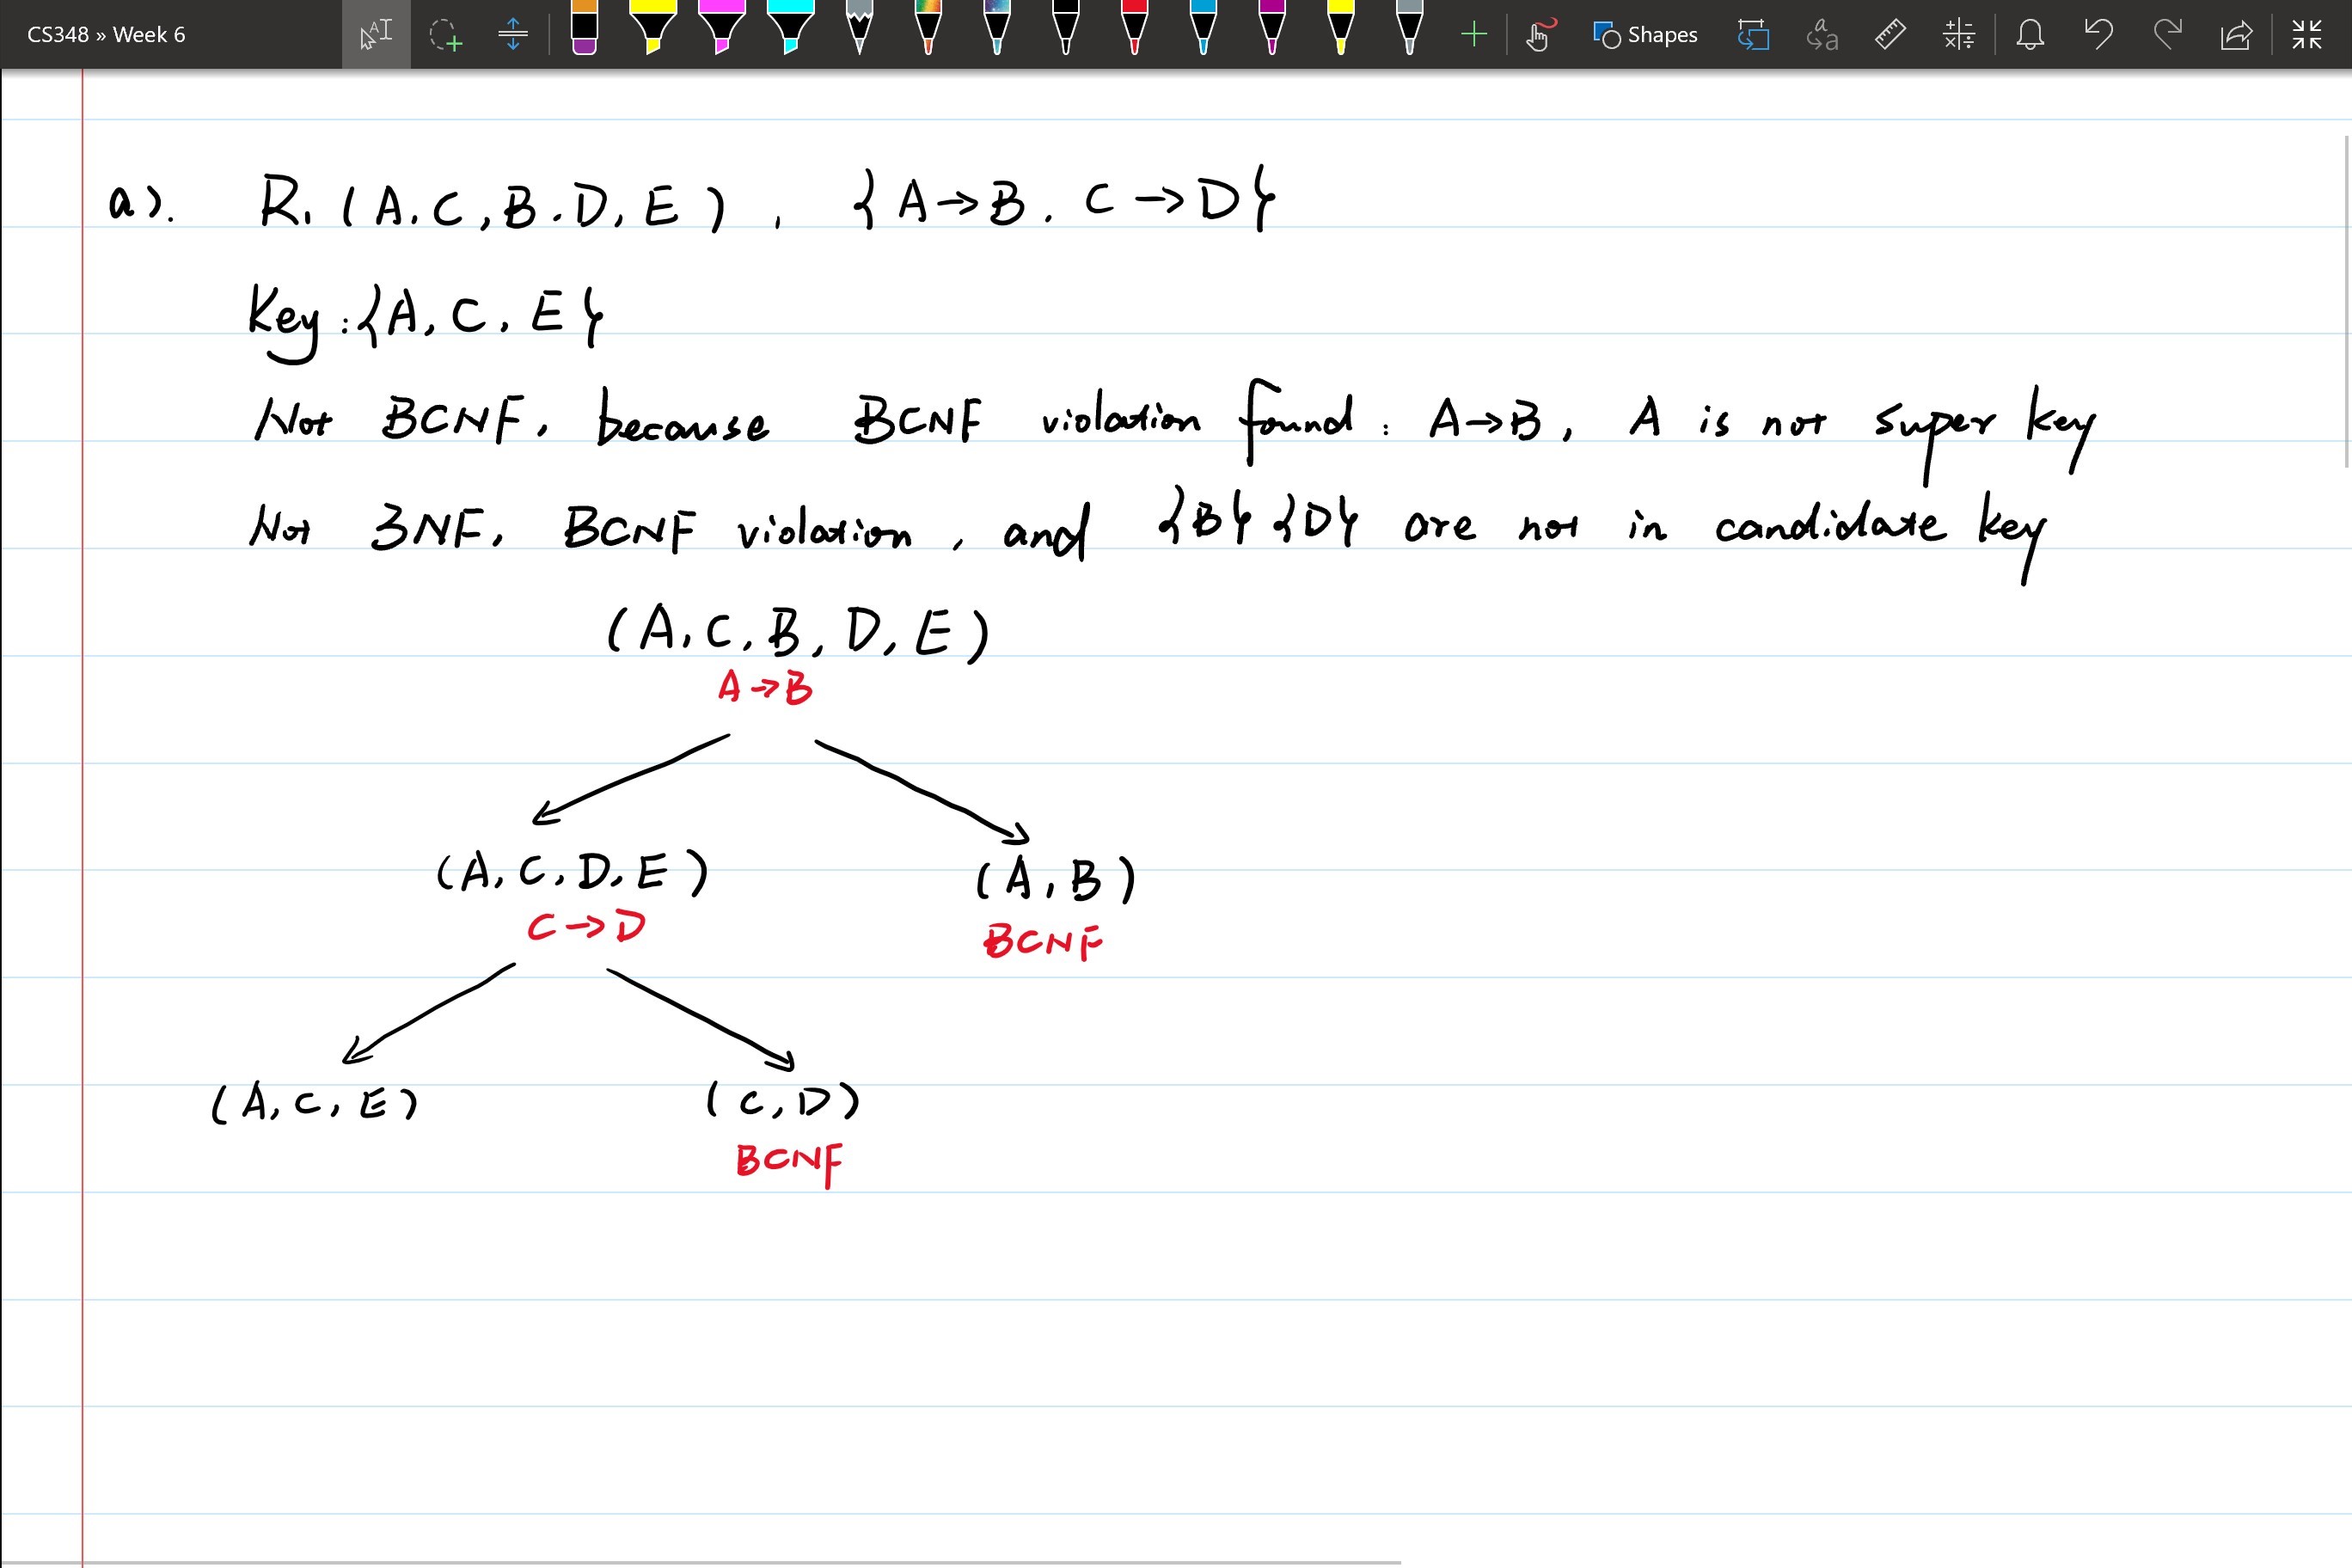 CS348 » Week 6
Shapes
a). R1 (A, C, B, D, E), {A→B, C→D}
Key: {A, C, E}
Not BCNF, because BCNF violation found: A→B, A is not super key
Not 3NF, BCNF violation, and {B} {D} are not in candidate key
(A, C, B, D, E)
A→B
(A, C, D, E) (A, B)
C→D BCNF
(A, C, E) (C, D)
BCNF